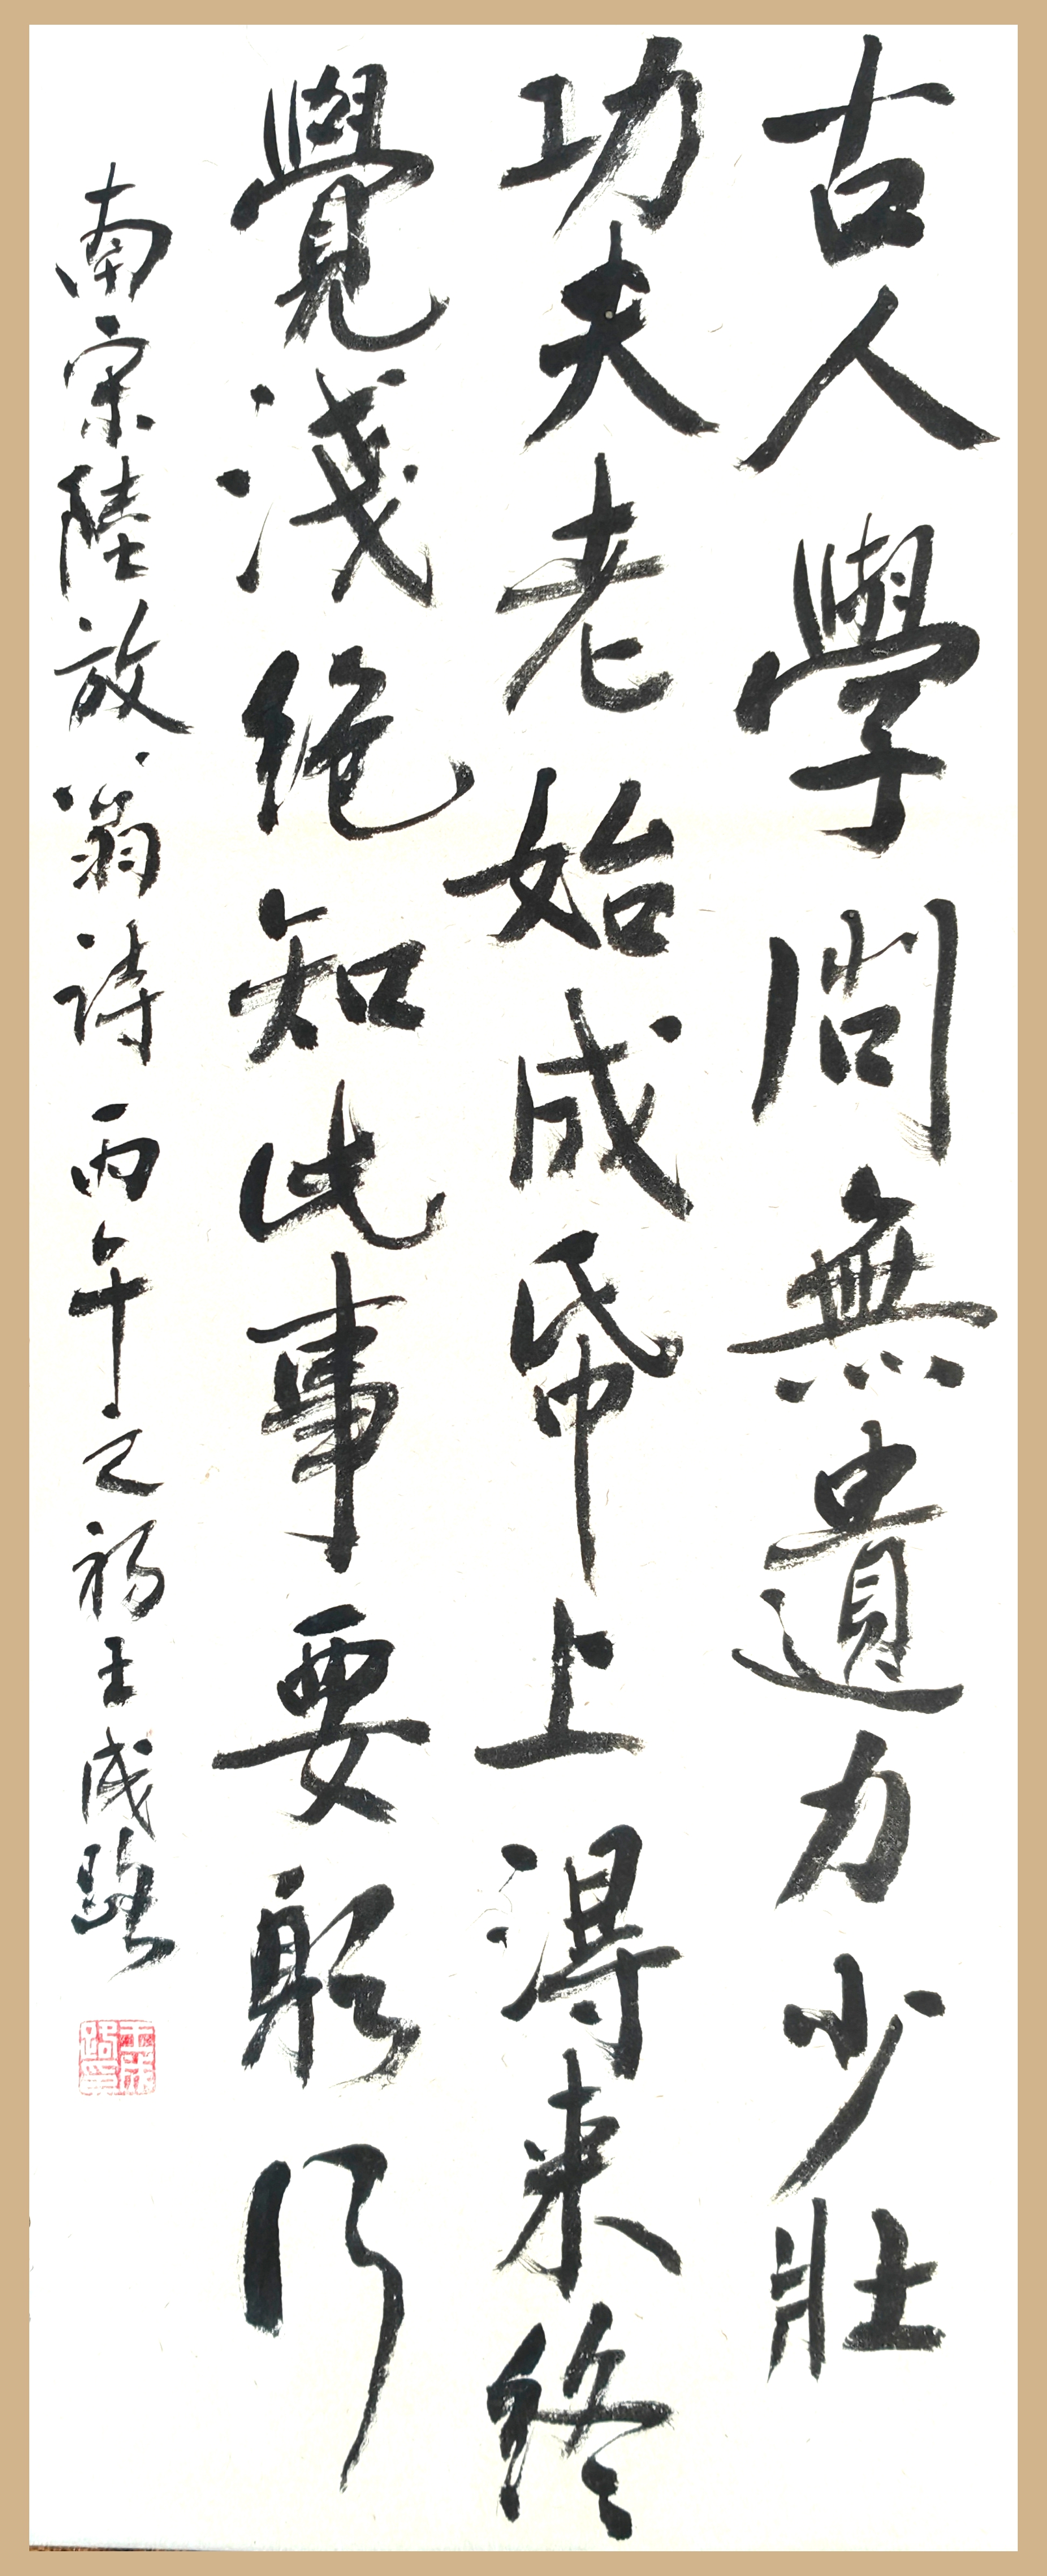 古人學問無遺力少壯
功夫老始成帋上得来終
覺淺絶知此事要躬行
南宋陸放翁詩丙午之初王成路